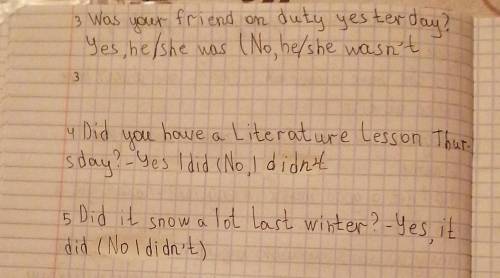 3 Was your friend on duty yesterday?
Yes, he/she was (No, he/she wasn't
3
4 Did you have a Literature Lesson Thur-
sday? - Yes I did (No, I didn't
5 Did it snow a lot last winter? - Yes, it
did (No I didn't)